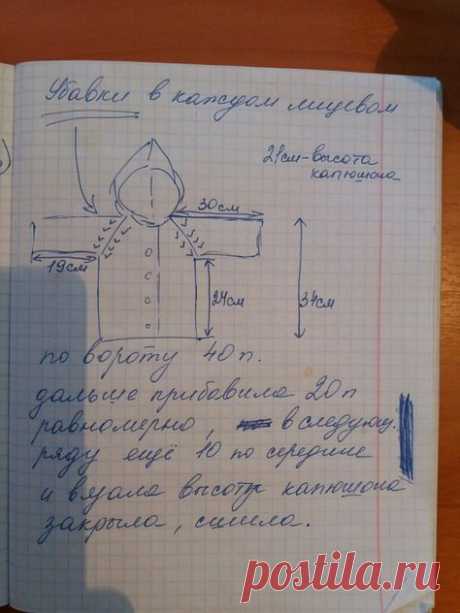 Убавки в каждом лицевом
21см-высота
капюшона
30см
19см
24см
34см
по вороту 40п.
дальше прибавила 20п
равномерно, в следующ.
ряду ещё 10 по середине
и вязала высоту капюшона
закрыла, сшила.
postila.ru